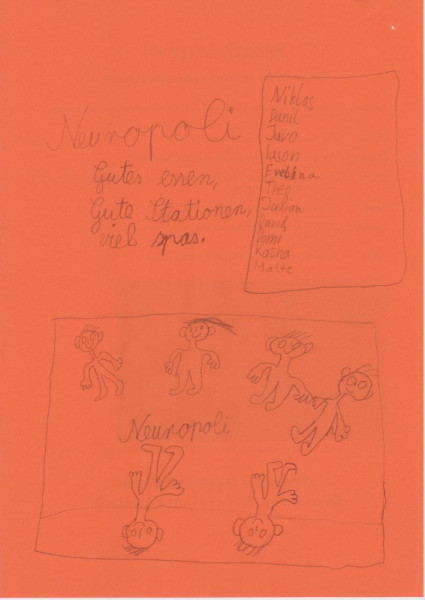 Neuropoli
Gutes essen,
Gute Stationen,
viel spas.
Niklas
Danil
Juro
Iason
Evelina
Theo
Julian
David
Tomi
Katha
Malte
Neuropoli